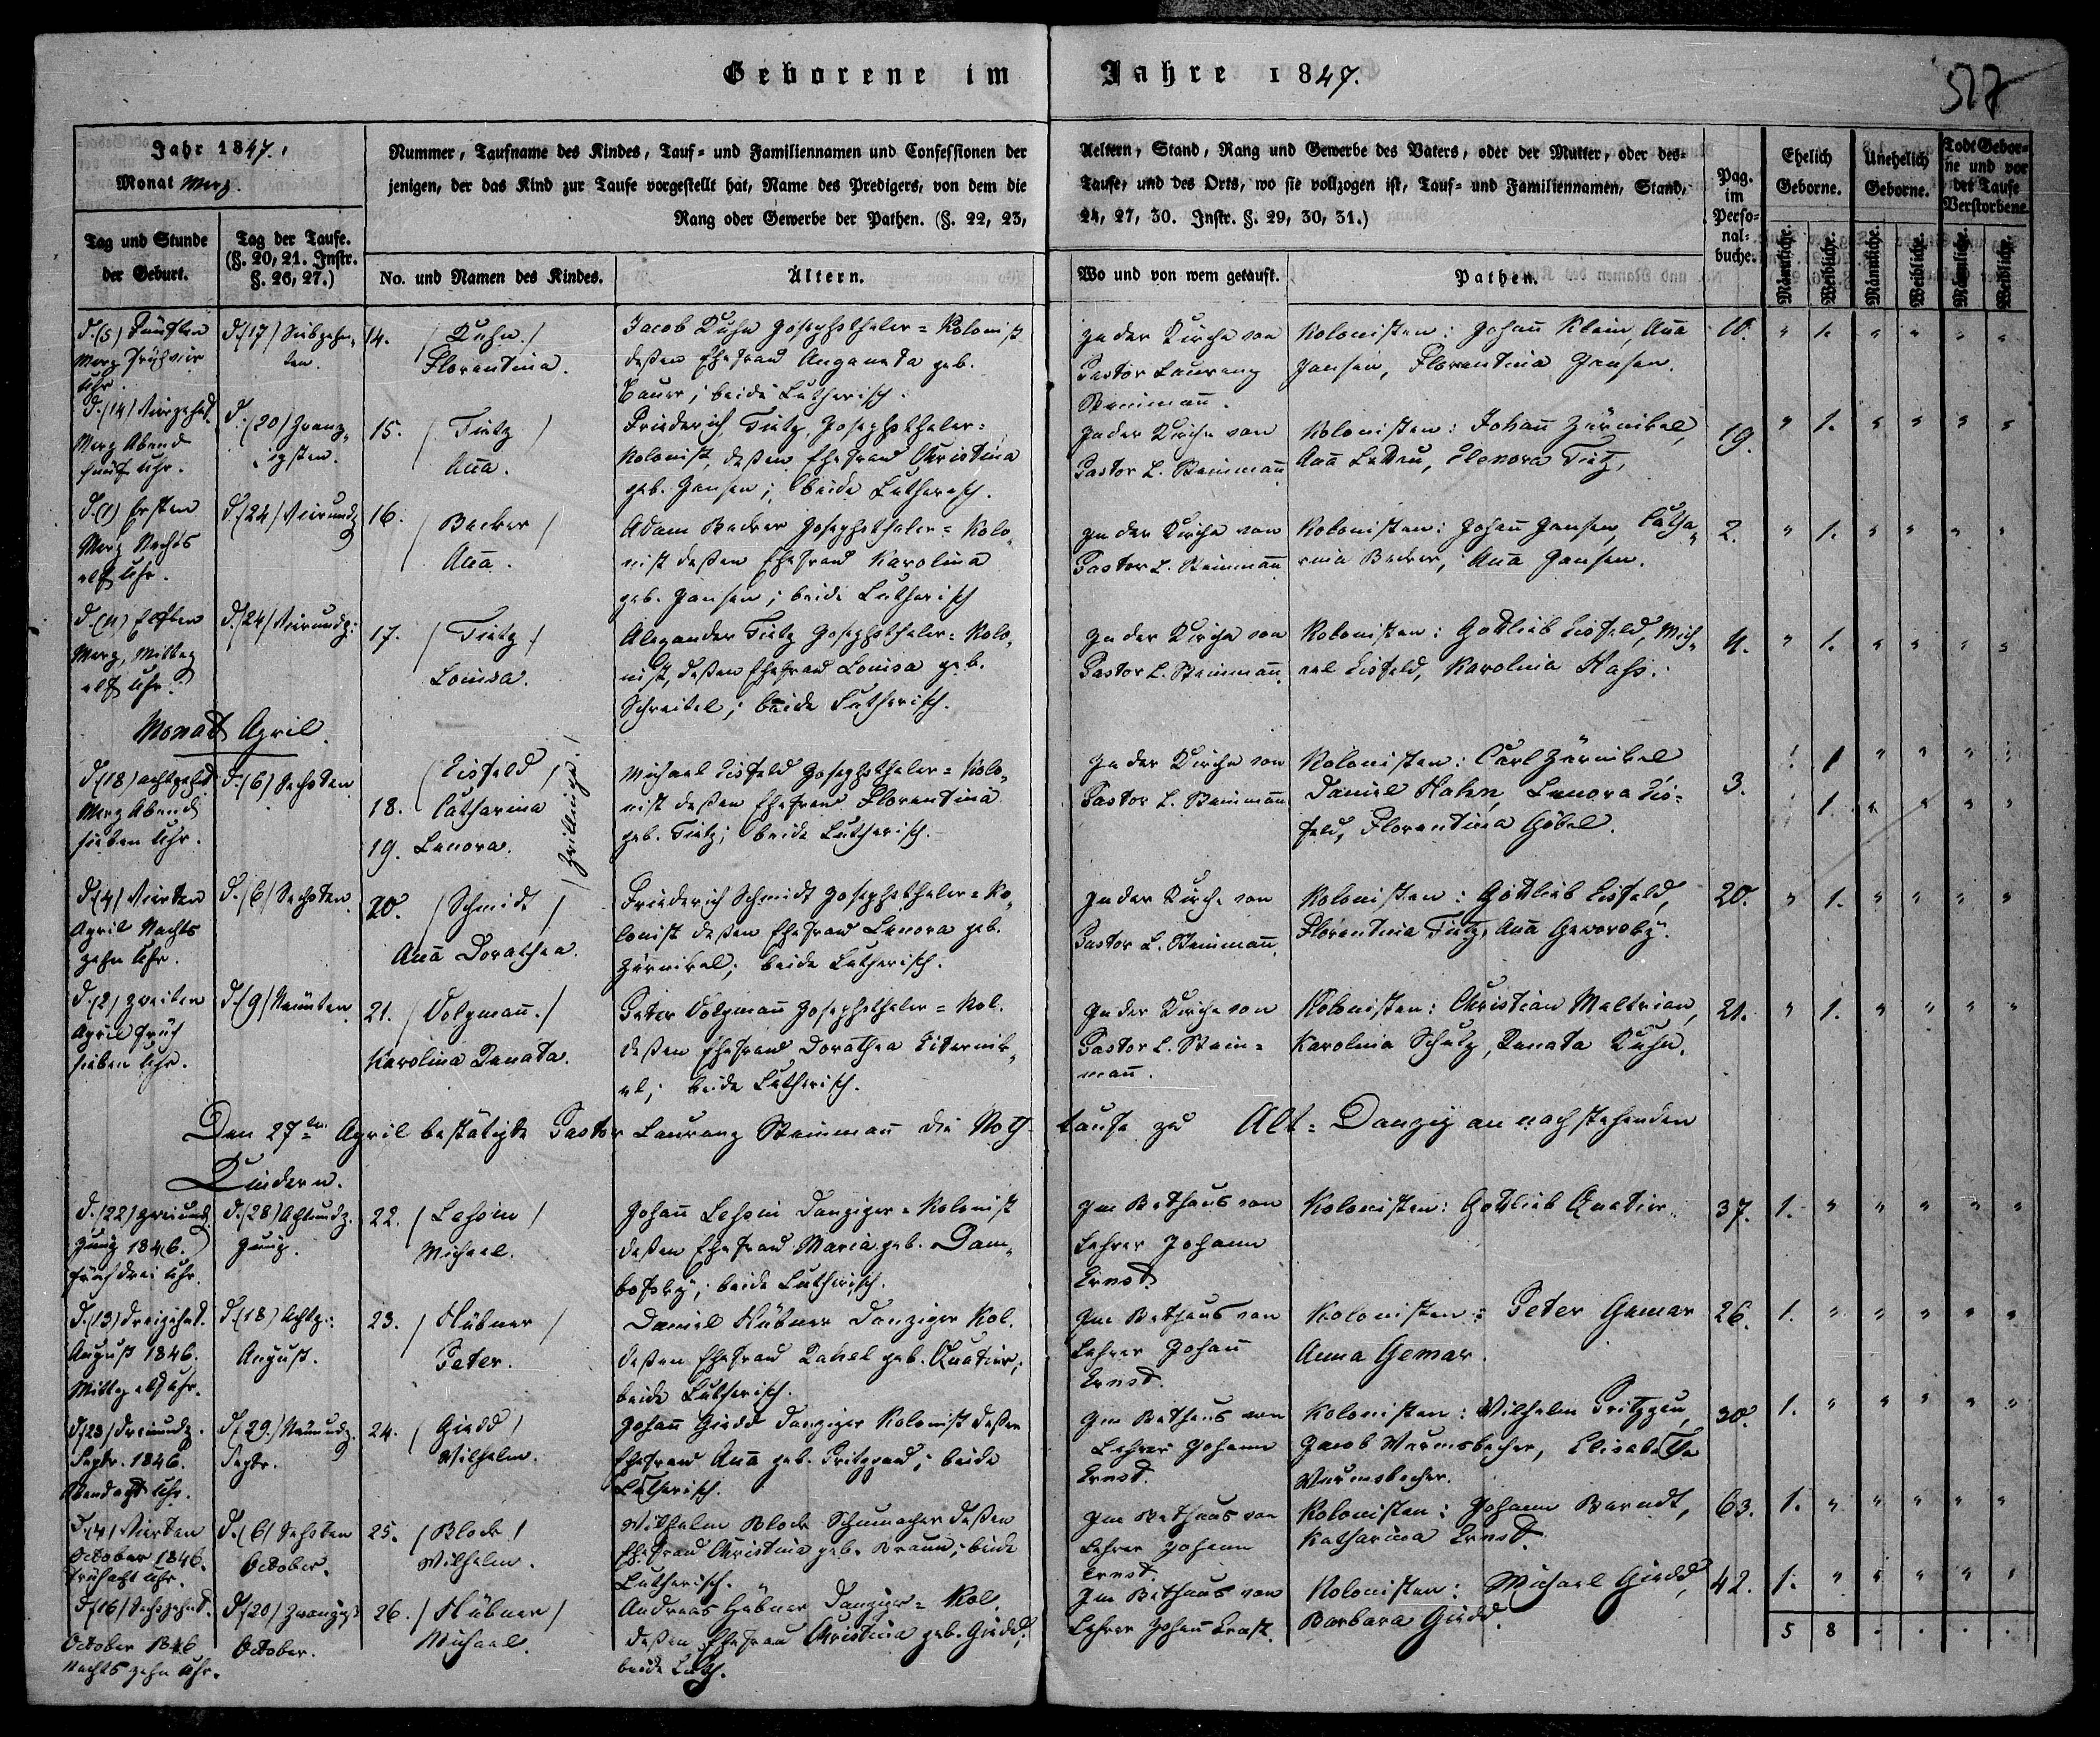 Geborene im Jahre 1847.
517
Jahr 1847.
Monat Merz.
Nummer, Taufname des Kindes, Tauf- und Familiennamen und Confessionen der
jenigen, der das Kind zur Taufe vorgestellt hat, Name des Predigers, von dem die
Rang oder Gewerbe der Pathen. (§. 22, 23,
Aeltern, Stand, Rang und Gewerbe des Vaters, oder der Mutter, oder des-
Taufe, und des Orts, wo sie vollzogen ist, Tauf- und Familiennamen, Stand,
24, 27, 30. Instr. §. 29, 30, 31.)
Pag.
im
Perso-
nal-
buche.
Ehelich
Geborne.
Unehelich
Geborne.
Todt Gebor-
ne und vor
der Taufe
Verstorbene
Tag und Stunde
der Geburt.
Tag der Taufe.
(§. 20, 21. Instr.
§. 26, 27.)
No. und Namen des Kindes.
Ältern.
Wo und von wem getauft.
Pathen.
Männliche.
Weibliche.
Männliche.
Weibliche.
Männliche.
Weibliche.
d. (5) Fünften
Merz früh vier
Uhr.
d. (17) Siebzehn-
ten.
14. / Kuhn /
Florentina.
Jacob Kuhn Josephsthaler-Kolonist
deßen Ehefrau Anganeta geb.
Bauer; beide Lutherisch.
In der Kirche von
Pastor Laurenz
Steinmañ.
Kolonisten: Johañ Klein, Aña
Jansen, Florentina Jansen.
10. " 1. " " " "
d. (14) Vierzehnt.
Merz Abend
fünf Uhr.
d. (20) Zwanz-
igsten.
15. / Tietz /
Aña.
Friederich Tietz, Josephsthaler-
Kolonist, deßen Ehefrau Christina
geb. Jansen; beide Lutherisch.
In der Kirche von
Pastor L. Steinmañ
Kolonisten: Johañ Zärnikel,
Aña Letkeu, Elenora Tietz,
19. " 1. " " " "
d. (1) Ersten
Merz Nachts
elf Uhr.
d. (24) Vierundz
16. / Becker /
Aña.
Adam Becker Josephsthaler-Kolo-
nist deßen Ehefrau Karolina
geb. Jansen; beide Lutherisch
In der Kirche von
Pastor L. Steinmañ
Kolonisten: Johañ Jansen, Catha-
rina Becker, Aña Jansen.
2. " 1. " " " "
d. (11) Elften
Merz, Mittag
elf Uhr.
d. (24) Vierundz:
17. / Tietz /
Louisa.
Alexander Tietz Josephsthaler-Kolo-
nist, deßen Ehefrau Louisa geb.
Schreitel; beide Lutherisch.
In der Kirche von
Pastor L. Steinmañ
Kolonisten: Gottlieb Eisfeld, Mich-
ael Eisfeld, Karolina Hass.
4. " 1. " " " "
Monat April.
d. (18) achtzehnt
Merz Abend
sieben Uhr.
d. (6) Sechsten
/ Eisfeld /
18. Catharina
19. Lenora.
/ Zwillinge. /
Michael Eisfeld Josephsthaler-Kolo-
nist deßen Ehefrau Florentina
geb. Tietz; beide Lutherisch.
In der Kirche von
Pastor L. Steinmañ
Kolonisten: Carl Zärnikel
Daniel Hahn, Lenora Eis-
feld, Florentina Göbel.
3. " 1 " " " "
" 1. " " " "
d. (4) Vierten
April Nachts
zehn Uhr.
d. (6) Sechsten
20. / Schmidt /
Aña Dorathea.
Friederich Schmidt Josephsthaler-Ko-
lonist deßen Ehefrau Lenora geb.
Zärnikel; beide Lutherisch.
In der Kirche von
Pastor L. Steinmañ
Kolonisten: Gottlieb Eisfeld,
Florentina Tietz, Aña Geworsky.
20. " 1. " " " "
d. (2) zweiten
April früh
sieben Uhr.
d. (9) Neunten
21. / Volzmañ. /
Karolina Renata.
Peter Volzmañ Josephsthaler-Kol.
deßen Ehefrau Dorathea
beide Lutherisch.
In der Kirche von
Pastor L. Stein-
mañ.
Kolonisten: Christian Maltrian,
Karolina Schulz, Renata Kuhn.
21. " 1. " " " "
Den 27ten April bestätigte Pastor Laurenz Steinmañ die Noth-taufe zu Alt-Danzig an nachstehenden
Kindern.
d. (22) zweiund.
Juny 1846.
früh drei Uhr.
d. (28) Achtundz.
Juny.
22. / Lessin /
Michael.
Johañ Lessin Danziger-Kolonist
deßen Ehefrau Maria geb. Dam-
bofsky; beide Lutherisch.
Im Bethaus von
Lehrer Johann
Ernst.
Kolonisten: Gottlieb Quatier.
37. 1. " " " " "
d. (13) Dreizehnt.
August 1846.
Mittag elf Uhr.
d. (18) Achtz:
August.
23. / Hübner /
Peter.
Daniel Hübner Danziger Kol.
deßen Ehefrau Rahel geb. Quatier;
beide Lutherisch.
Im Bethaus von
Lehrer Johañ
Ernst.
Kolonisten: Peter Gemar
Anna Gemar.
26. 1. " " " " "
d. (23) Dreiundz.
Septr. 1846.
Abend acht Uhr.
d. (29.) Neunundz.
Septr.
24. / Giedd /
Wilhelm.
Johañ Giedd Danziger Kolonist deßen
Ehefrau Aña geb. Pritzgau; beide
Lutherisch.
Im Bethaus von
Lehrer Johann
Ernst.
Kolonisten: Wilhelm Pritzgau,
Jacob Wurmsbecher, Elisabetha
Wurmsbecher.
30. 1. " " " " "
d. (4) Vierten
October 1846.
früh acht Uhr.
d. (6) Sechsten
October.
25. / Block /
Wilhelm.
Wilhelm Block Schumacher deßen
Ehefrau Christina geb. Braun; beide
Lutherisch.
Im Bethaus von
Lehrer Johann
Ernst.
Kolonisten: Johann Berndt,
Katharina Ernst.
63. 1. " " " " "
d. (16) Sechszehnt.
October 1846
Nachts zehn Uhr.
d. (20) Zwanzigst
October.
26. / Hübner /
Michael.
Andreas Hübner Danziger-Kol.
deßen Ehefrau Christina geb. Giedd;
beide Luth.
Im Bethaus von
Lehrer Johañ Ernst.
Kolonisten: Michael Giedd,
Barbara Giedd.
42. 1. " " " " "
5 8 . . . .